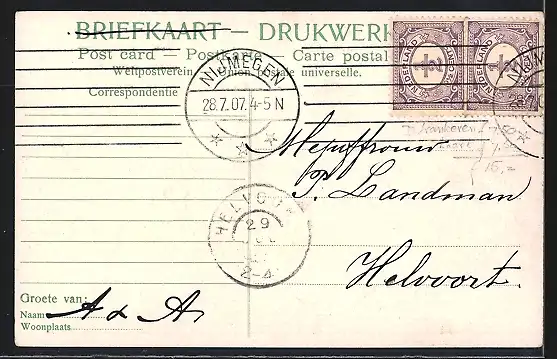 BRIEFKAART — DRUKWERK
Post card Postkarte Carte postale
Weltpostverein Union postale universelle.
Correspondentie
NIJMEGEN
28.7.07. 4-5 N
NEDERLAND
NEDERLAND
½
½
NIJM
Mejuffrouw
P. Landman
Helvoort.
HELVO
29
2-4
Groete van:
Naam A & A.
Woonplaats